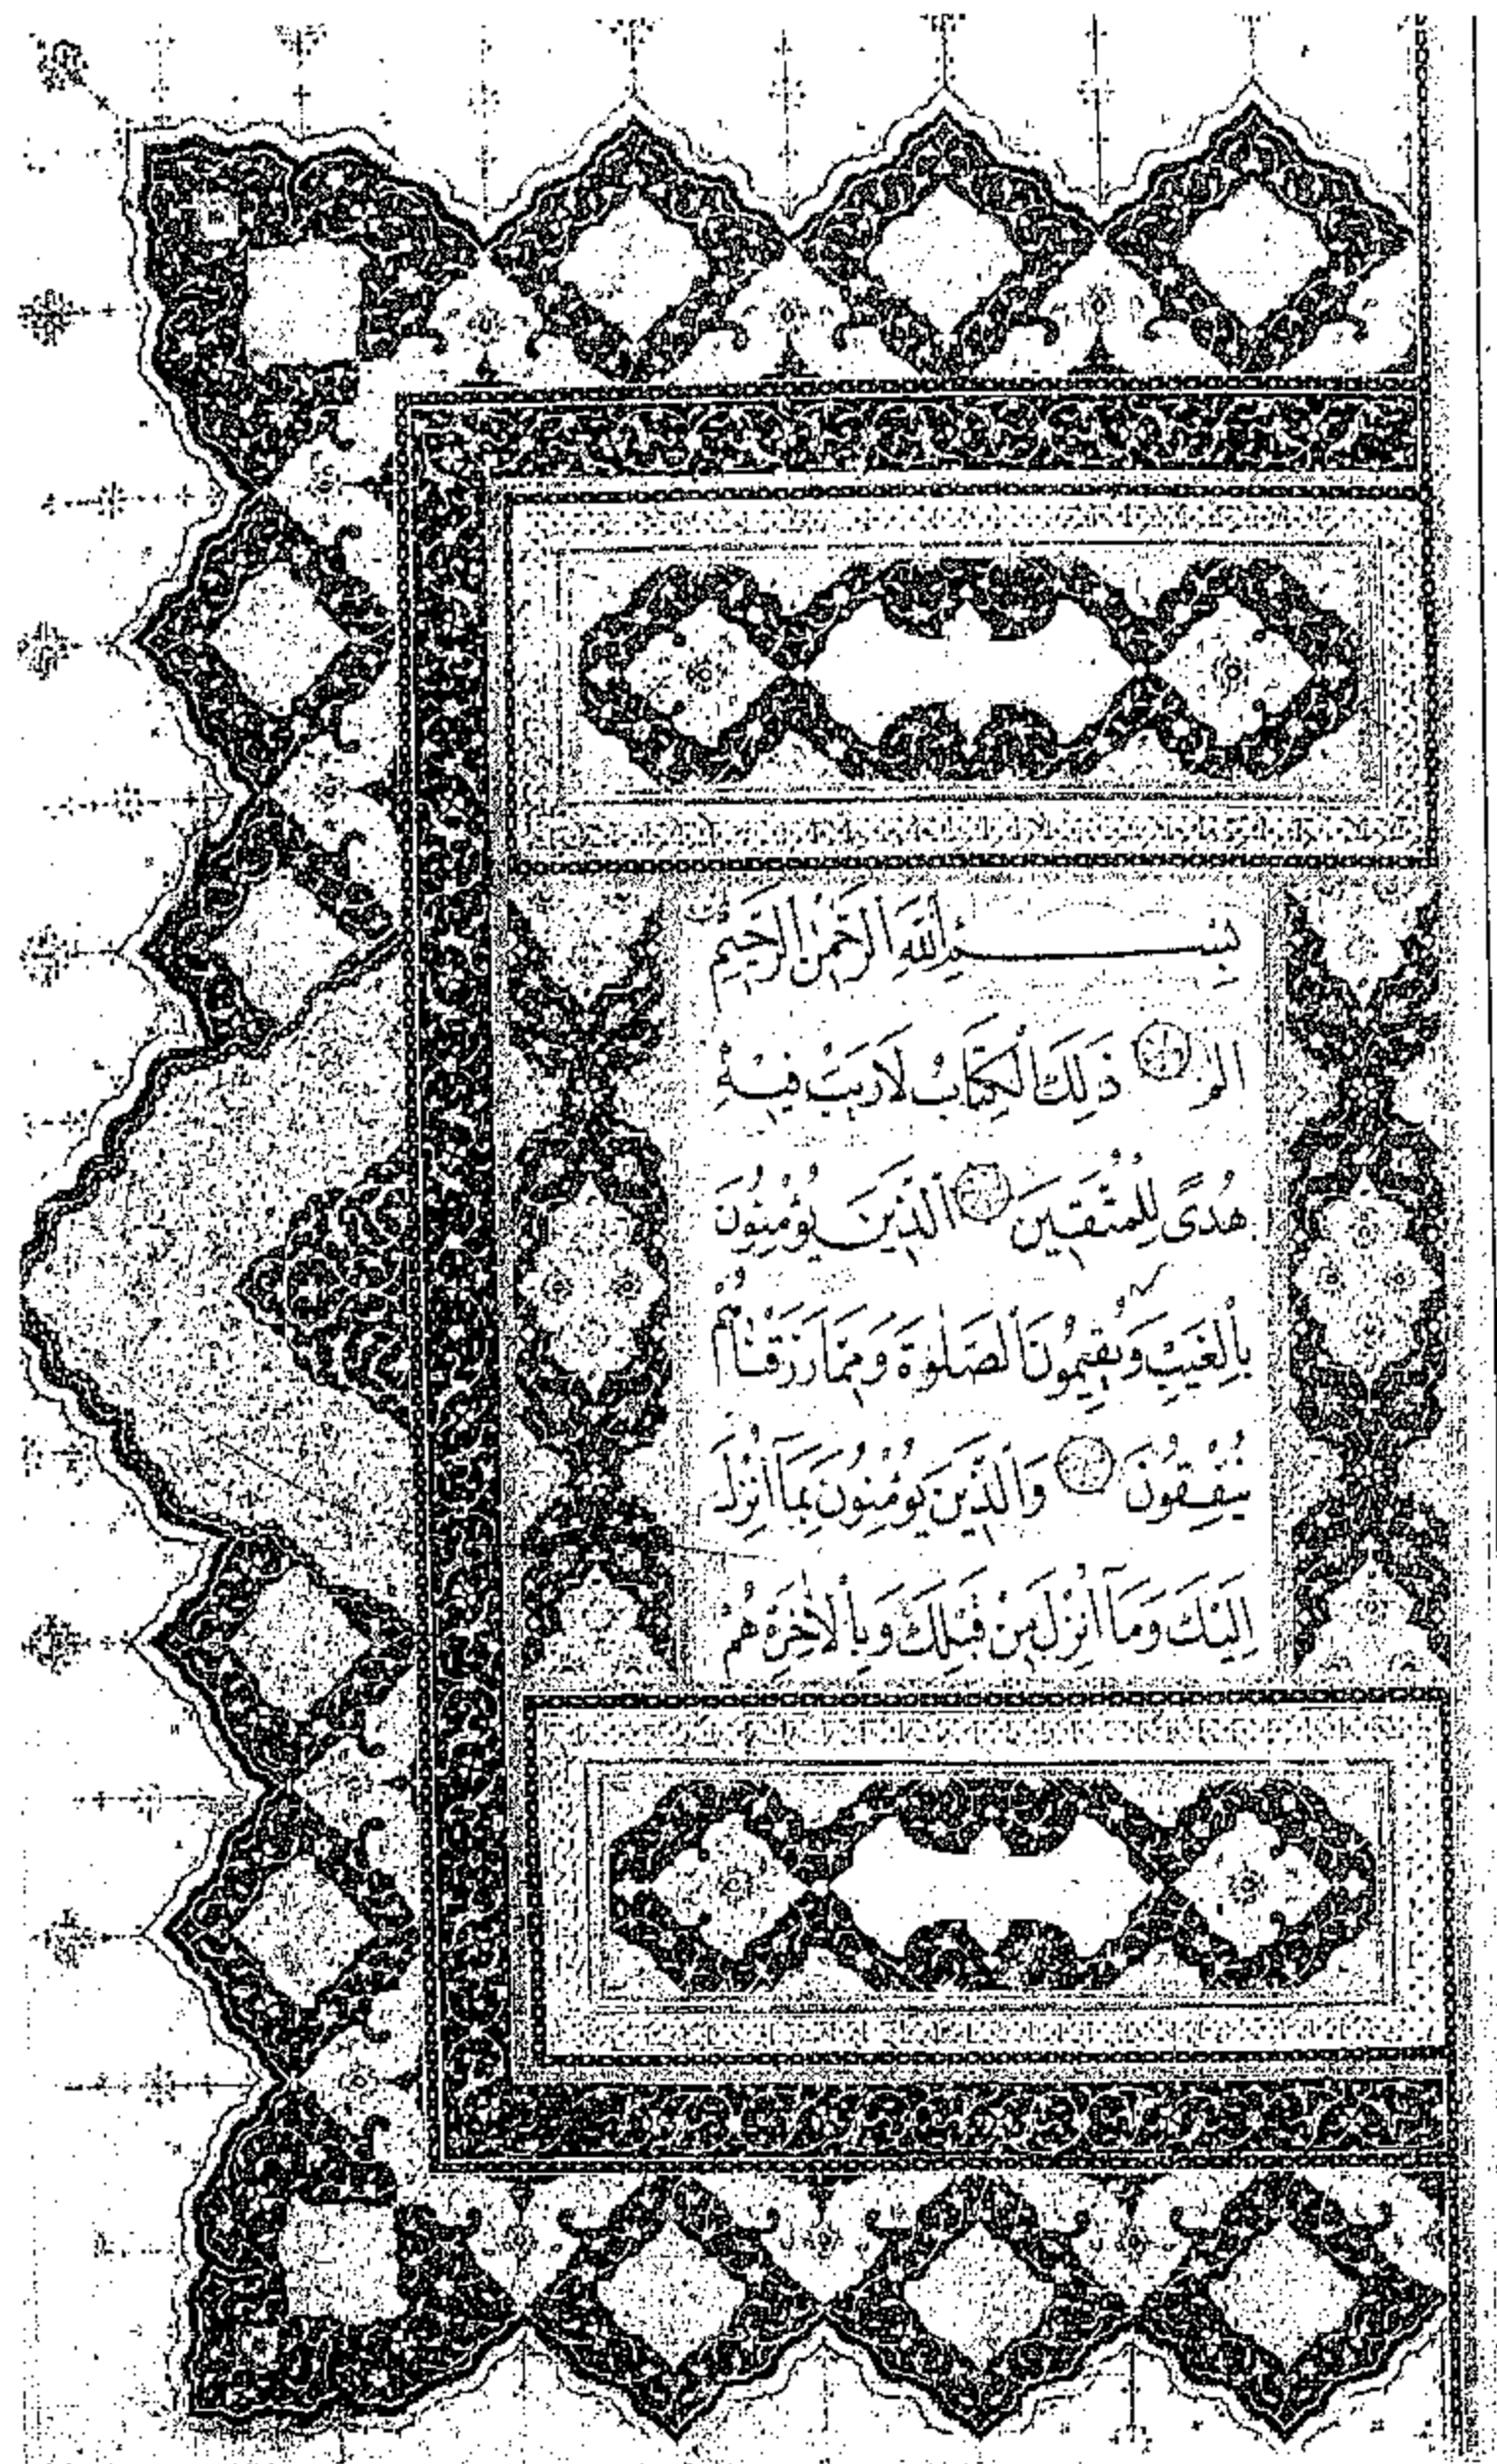 بِسْمِ اللَّهِ الرَّحْمَٰنِ الرَّحِيمِ
الم ذَٰلِكَ الْكِتَابُ لَا رَيْبَ فِيهِ
هُدًى لِلْمُتَّقِينَ الَّذِينَ يُؤْمِنُونَ
بِالْغَيْبِ وَيُقِيمُونَ الصَّلَوٰةَ وَمِمَّا رَزَقْنَاهُمْ
يُنْفِقُونَ وَالَّذِينَ يُؤْمِنُونَ بِمَآ أُنْزِلَ
إِلَيْكَ وَمَآ أُنْزِلَ مِنْ قَبْلِكَ وَبِالْأَخِرَةِ هُمْ